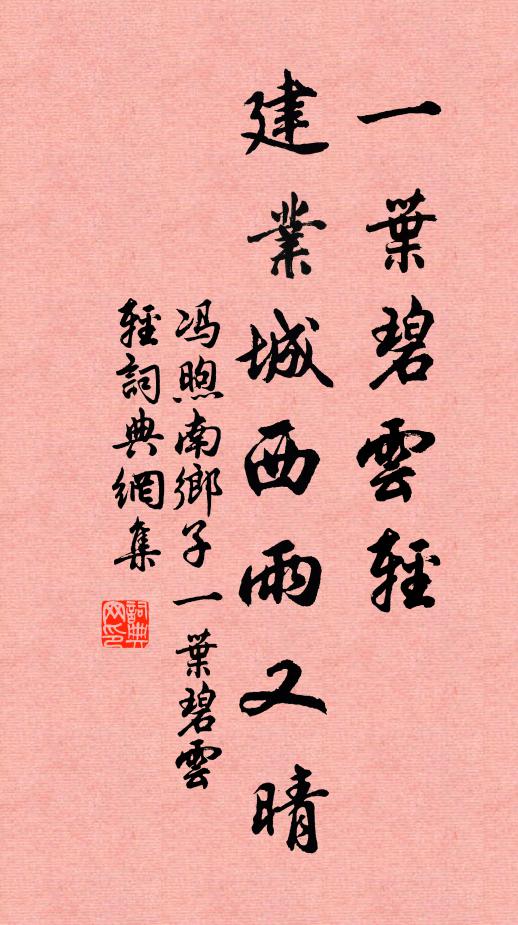 一葉碧雲輕
建業城西雨又晴
冯煦南鄉子一葉碧雲
輕詞典網集
詞典
网印